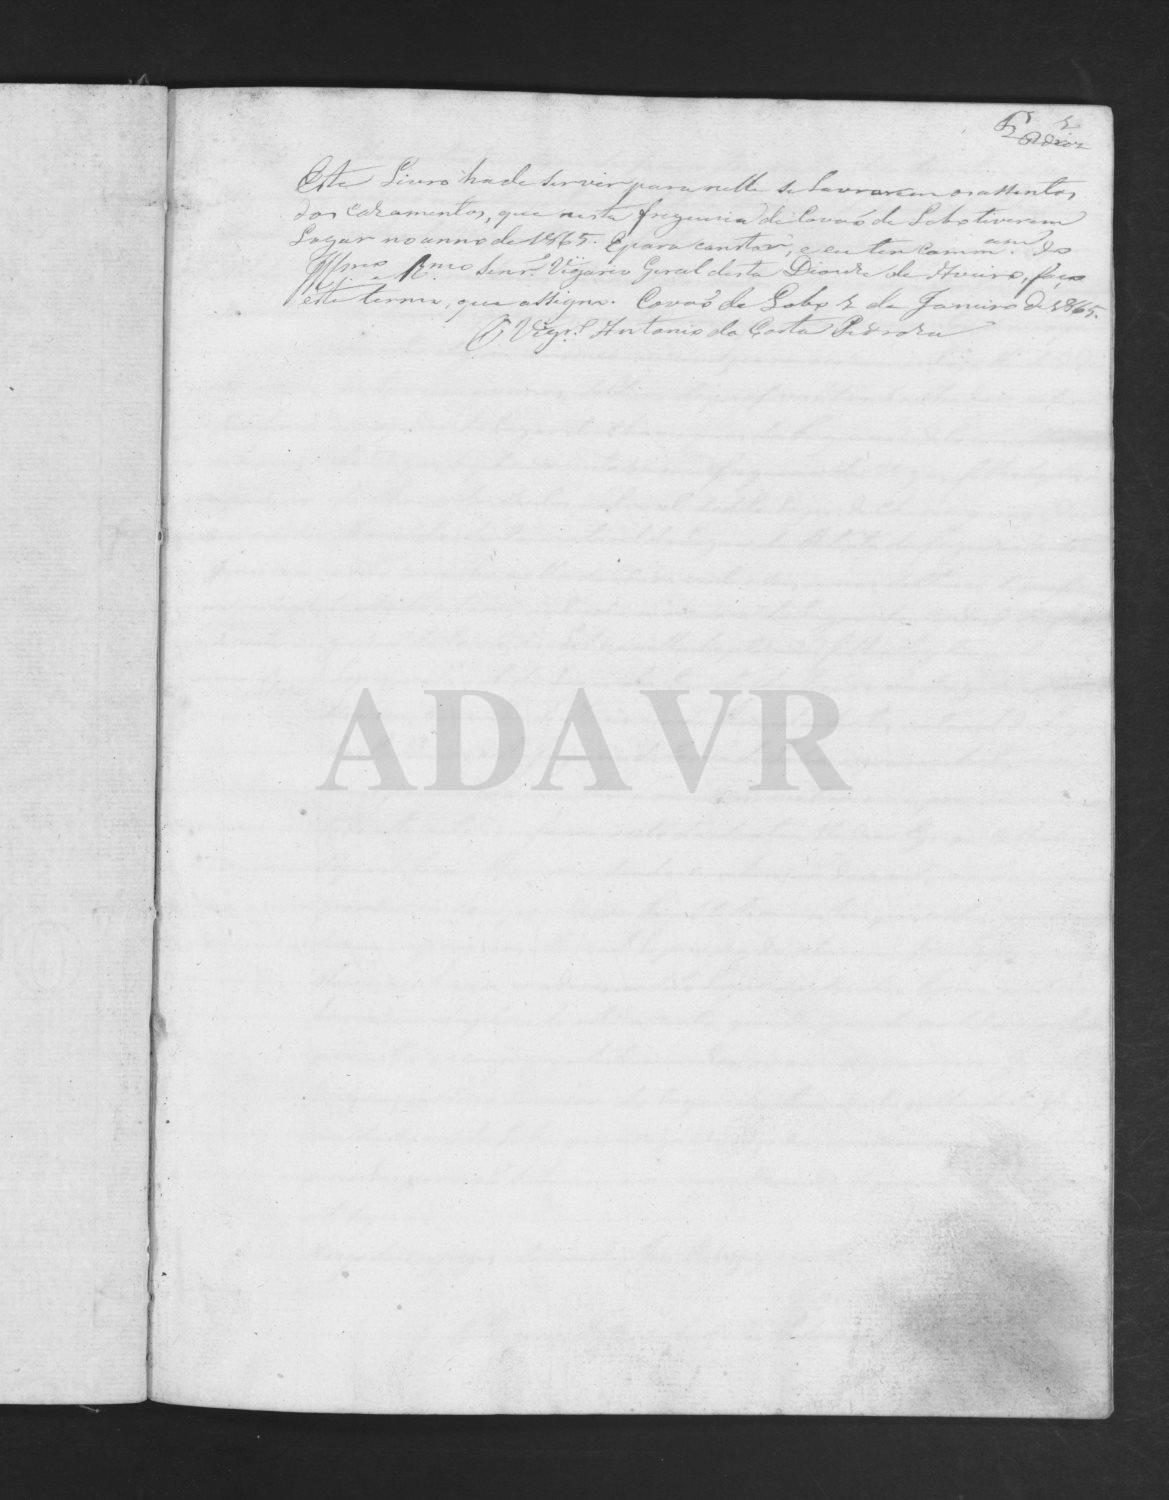 Este Livro hade servir para nelle se lavrarem os assentos
dos casamentos, que nesta freguesia de Covaõ de Lobo tiverem
Lugar no anno de 1865. E para constar, e eu ter comm.am do
Ill.mo e R.mo Senr. Vigario Geral desta Diocese de Aveiro, faço
este termo, que assigno. Covaõ de Lobo 2 de Janeiro de 1865.
O Vigr.o Antonio da Costa Pedroza
ADAVR